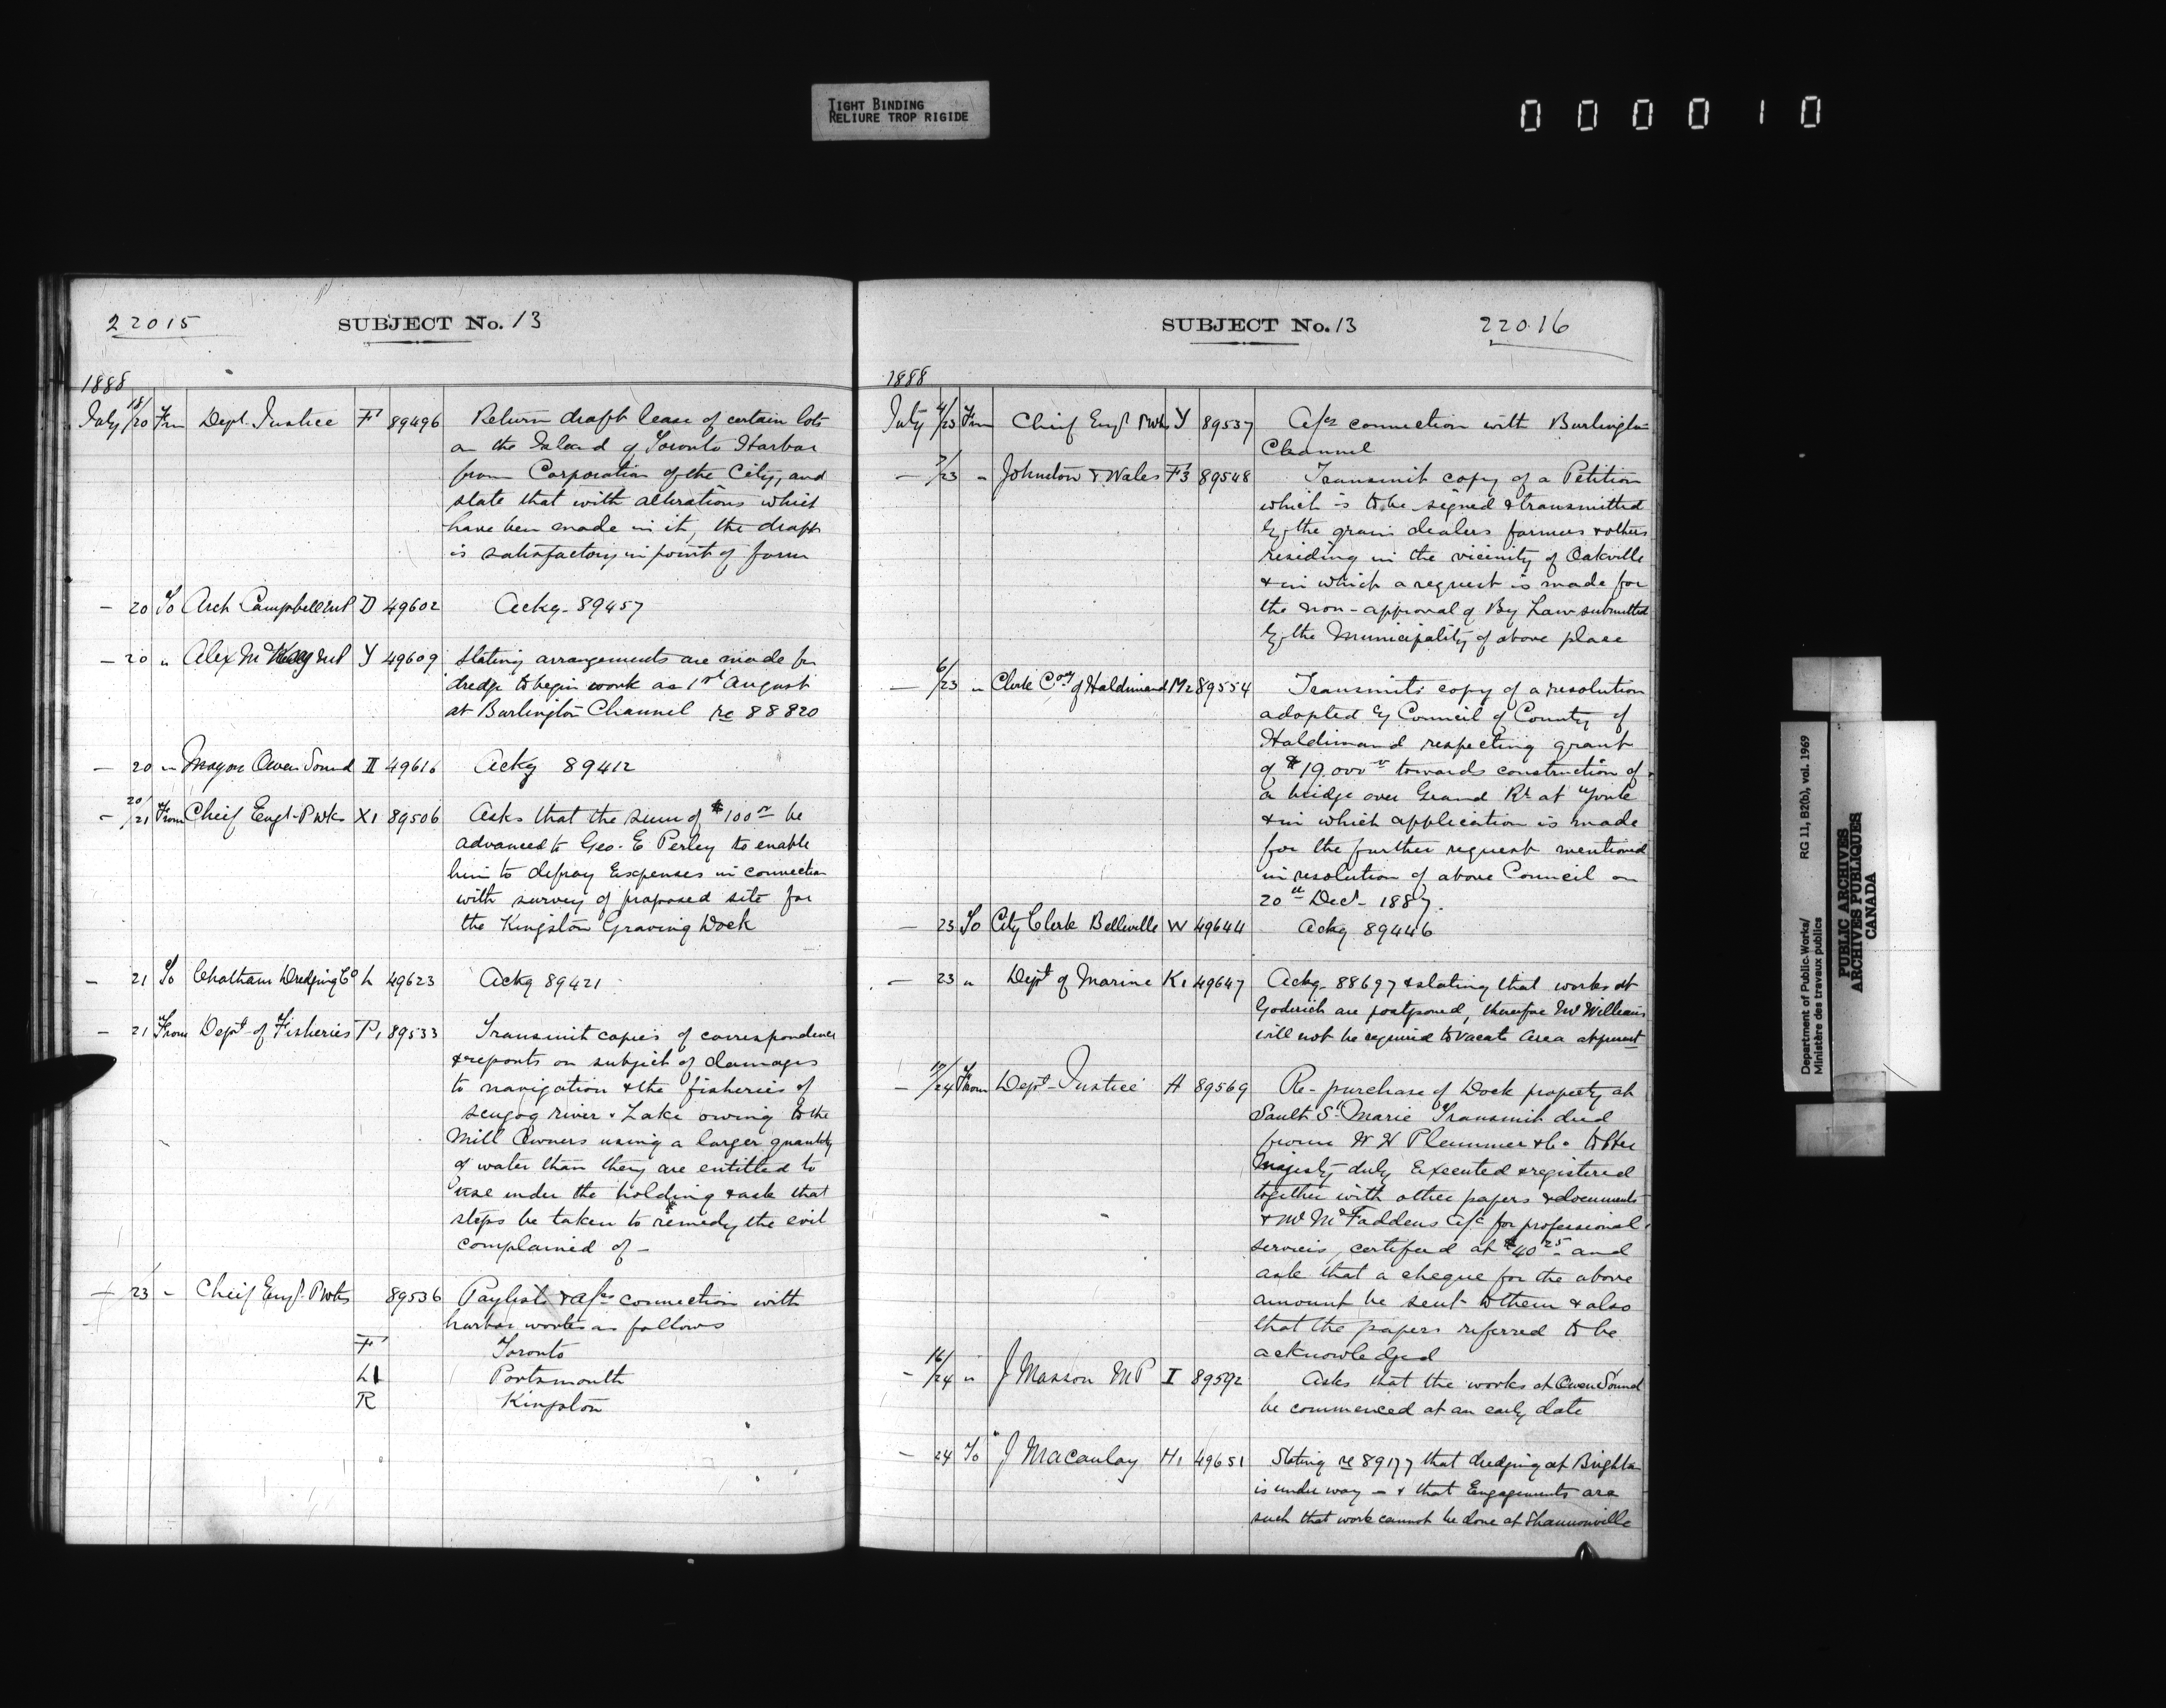 TIGHT BINDING
RELIURE TROP RIGIDE
000010
22015
SUBJECT No. 13
1888
July 18/20 Frm Dept. Justice F1 89496 Return draft lease of certain lots
on the Island of Toronto Harbor
from Corporation of the City, and
state that with alterations which
have been made in it, the draft
is satisfactory in point of form
— 20 To Arch Campbell MP D 49602 Ackg. 89457
— 20 " Alex McKay MP Y 49609 Stating arrangements are made for
dredge to begin work as 1st August
at Burlington Channel re 88820
— 20 " Mayor Owen Sound II 49616 Ackg 89412
— 20/21 From Cheif Engr. P Wks X1 89506 Asks that the sum of $100 be
advanced to Geo. E Perley to enable
him to defray Expenses in connection
with survey of proposed site for
the Kingston Graving Dock
— 21 To Chatham Dredging Co L 49623 Ackg 89421
— 21 From Dept of Fisheries P1 89533 Transmit copies of correspondence
& reports on subject of damages
to navigation & the fisheries of
Scugog river & Lake owing to the
Mill Owners using a larger quantity
of water than they are entitled to
use under the holding & ask that
steps be taken to remedy the evil
complained of —
— 23 " Cheif Engr. P Wks 89536 Paylists & a/cs connection with
harbor works as follows
F1 Toronto
L1 Portsmouth
R Kingston
SUBJECT No. 13
22016
1888
July 4/23 Frm Chief Engr P Wks Y 89537 A/cs connection with Burlington
Channel
— 7/23 " Johnston & Wales F3 89548 Transmit copy of a Petition
which is to be signed & transmitted
by the grain dealers farmers & others
residing in the vicinity of Oakville
& in which a request is made for
the non-approval of By Law submitted
by the Municipality of above place
— 6/23 " Clerk Coy of Haldimand M2 89554 Transmits copy of a resolution
adopted by Council of County of
Haldimand respecting grant
of $19.000 towards construction of
a bridge over Grand Rr at York
& in which application is made
for the further request mentioned
in resolution of above Council on
20th Decr 1887.
— 23 To City Clerk Belleville W 49644 Ackg 89446
— 23 " Dept of Marine K1 49647 Ackg. 88697 & stating that works at
Goderich are postponed, therefore Mr Williams
will not be required to vacate area at present
— 19/24 From Dept Justice H 89569 Re-purchase of Dock property at
Sault St Marie Transmit deed
from W H Plummer & Co to Her
Majesty duly Executed & registered
together with other papers & documents
& Mr McFaddens a/c for professional
services, certified at $40 25 and
ask that a cheque for the above
amount be sent to them & also
that the papers referred to be
acknowledged
— 16/24 " J Masson MP I 89592 Asks that the works at Owen Sound
be commenced at an early date
— 24 To J Macaulay H1 49651 Stating re 89177 that dredging at Brighton
is under way — & that Engagements are
such that work cannot be done at Shannonville
Department of Public Works/
Ministère des travaux publics
RG 11, B2(b), vol. 1969
PUBLIC ARCHIVES
ARCHIVES PUBLIQUES
CANADA